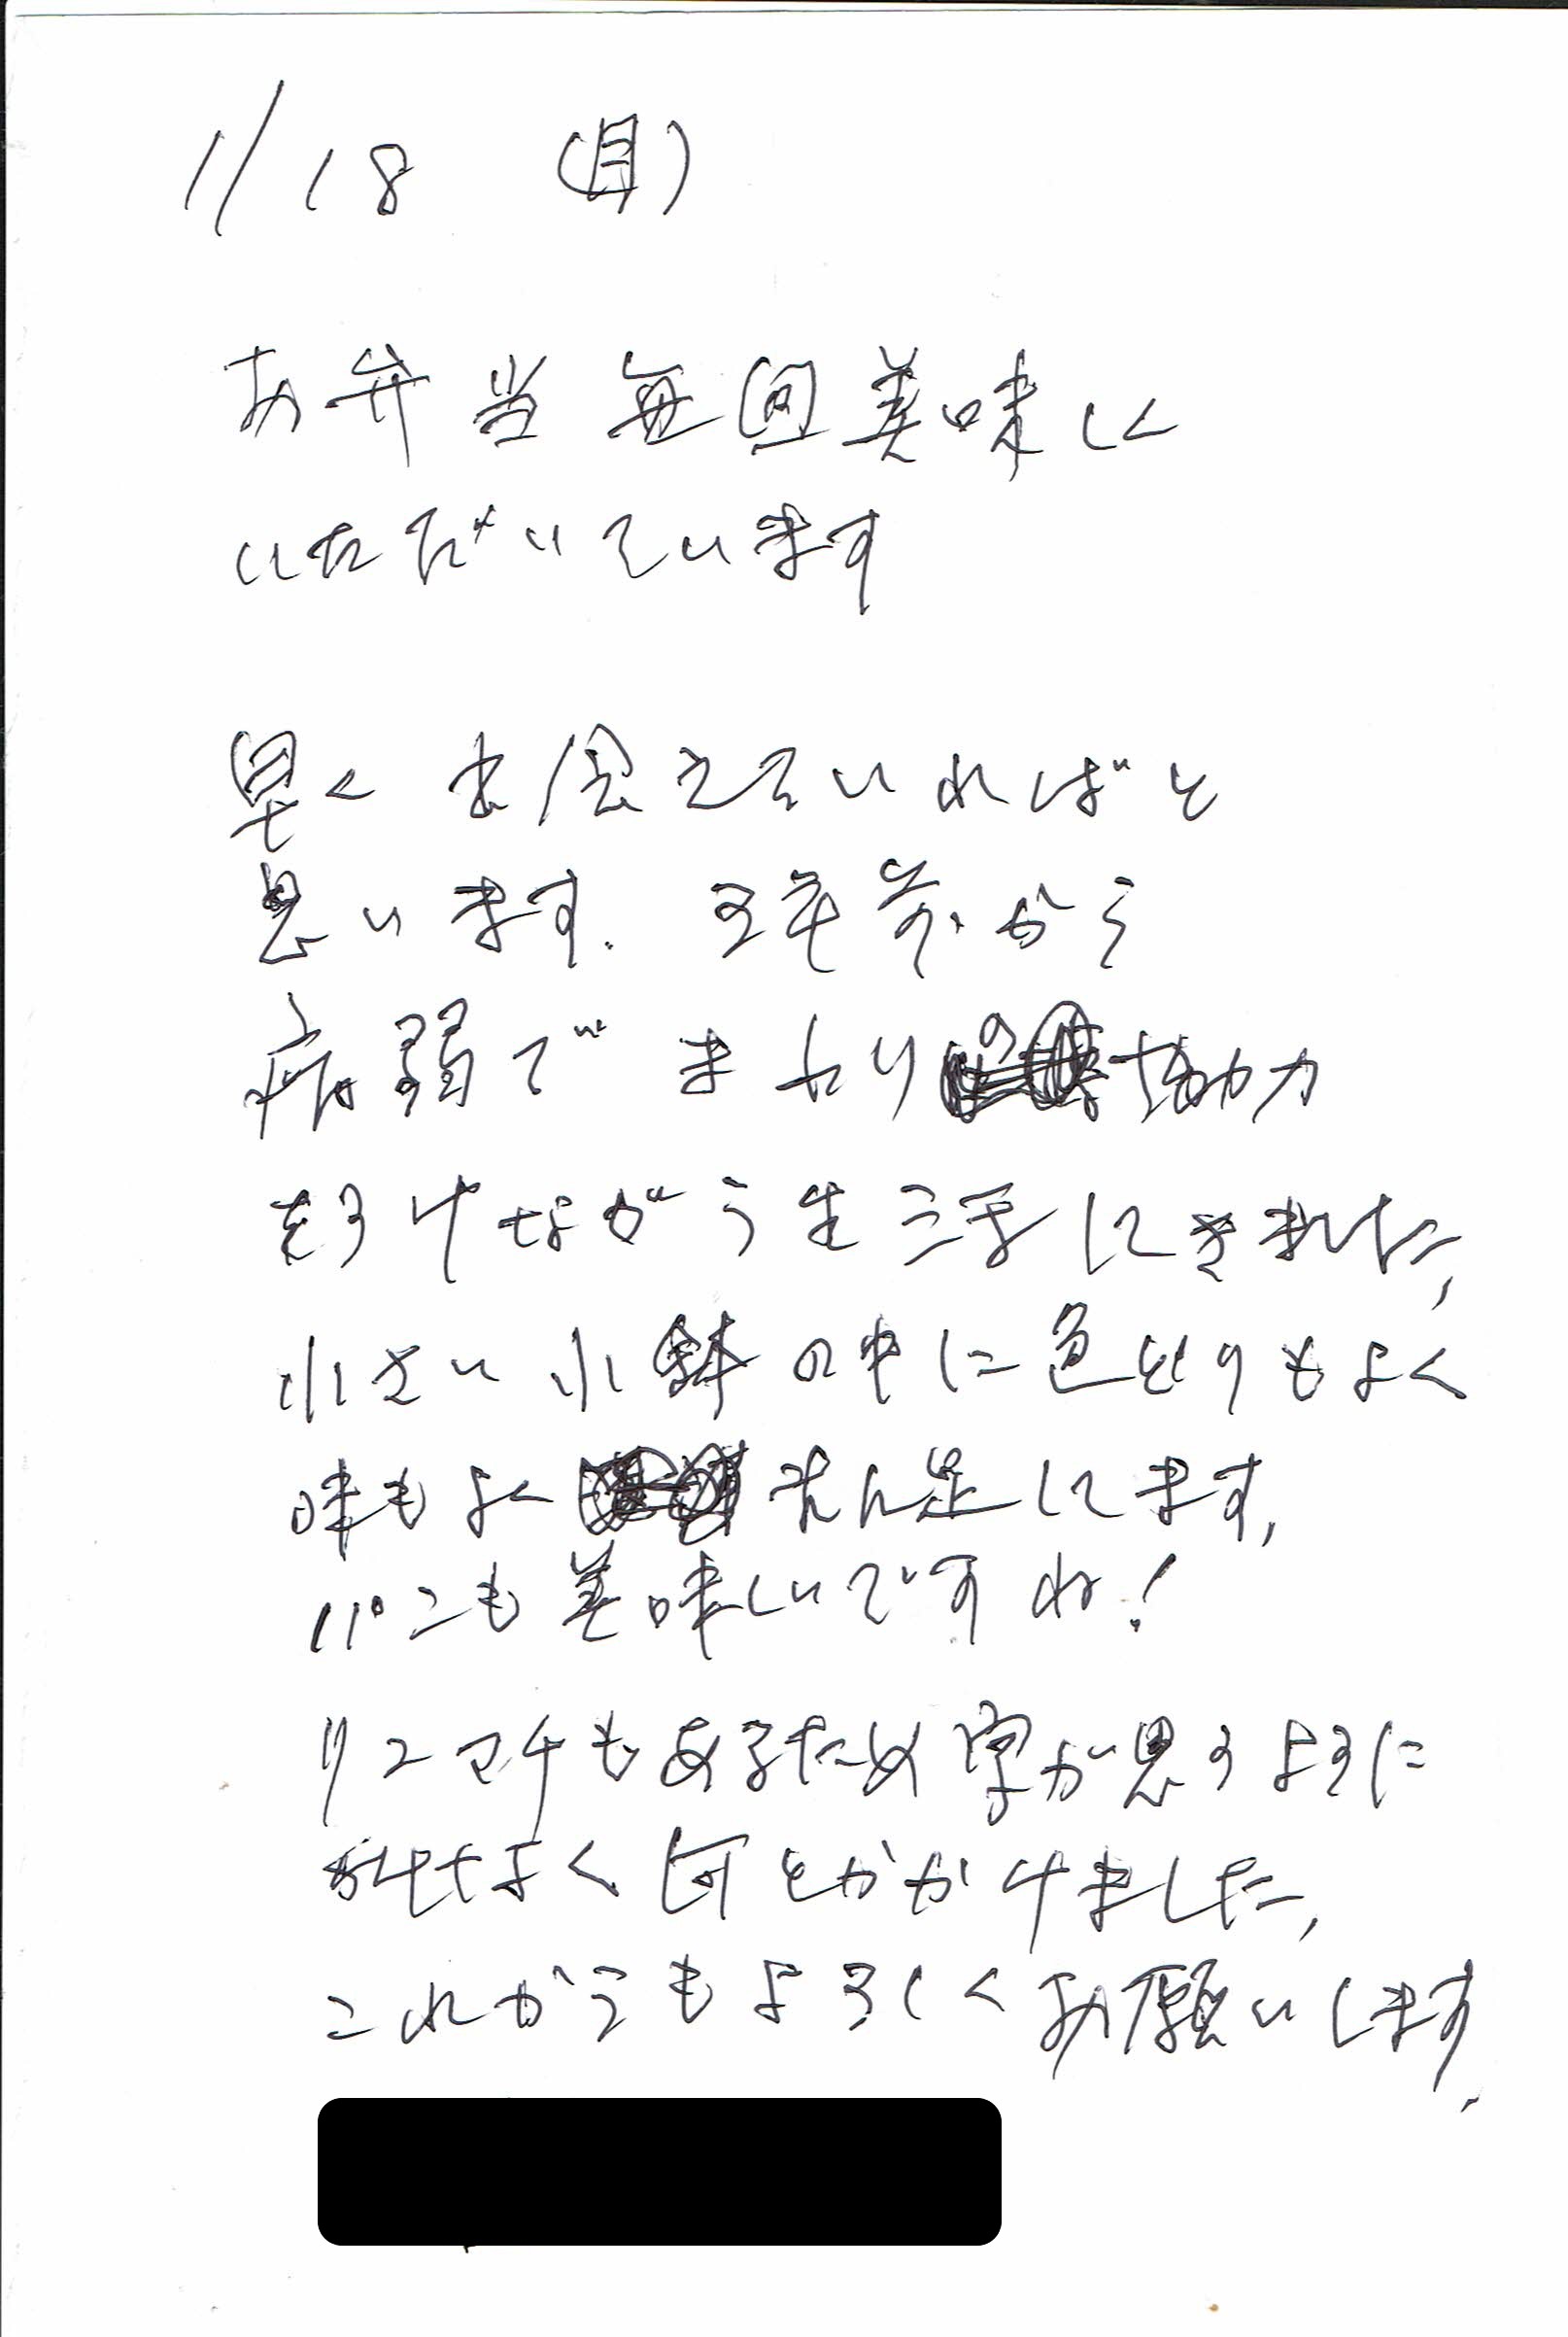 11/18 (月)
お弁当毎回美味しく
いただいています
早くお会えていればと
思います. 3年前から
病弱でまわり 協力
をうけながら生活してきました,
小さい小鉢の中に色どりもよく
味もよく まん足してます,
パンも美味しいですね!
リウマチもあるため字が思うように
かけなく何とかかけました,
これからもよろしくお願いします,